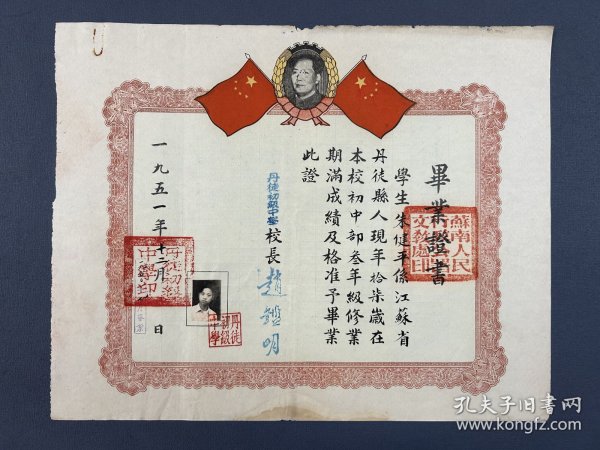 畢業證書
學生朱健平係江蘇省
丹徒縣人現年拾柒歲在
本校初中部叁年級修業
期滿成績及格准予畢業
此證
丹徒初級中學校長 趙鎧明
一九五一年十二月 日
蘇南人民
文教處印
丹徒
初級
中學
孔夫子旧书网
www.kongfz.com